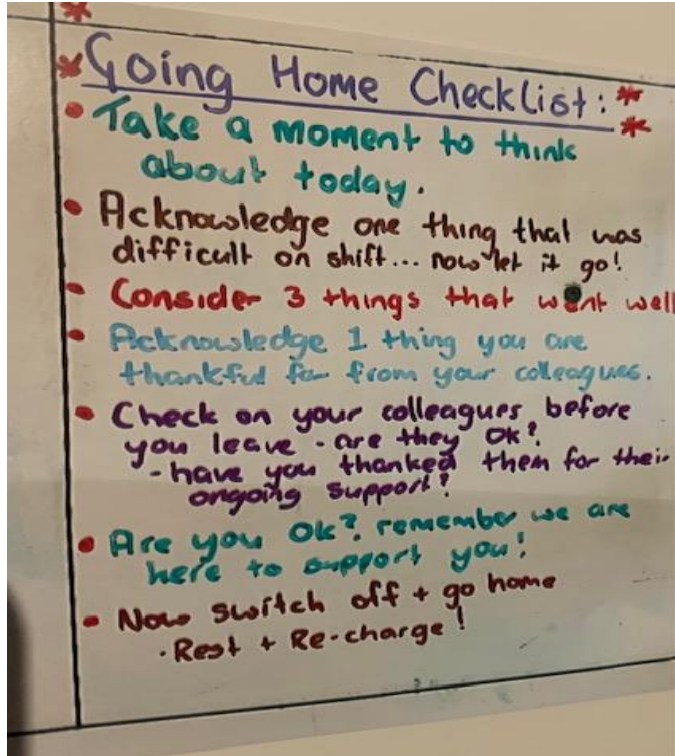 Going Home Checklist:
• Take a moment to think
about today.
• Acknowledge one thing that was
difficult on shift... now let it go!
• Consider 3 things that went well
• Acknowledge 1 thing you are
thankful for from your colleagues.
• Check on your colleagues before
you leave - are they ok?
- have you thanked them for their
ongoing support?
• Are you ok? remember we are
here to support you!
• Now switch off + go home
· Rest + Re-charge!